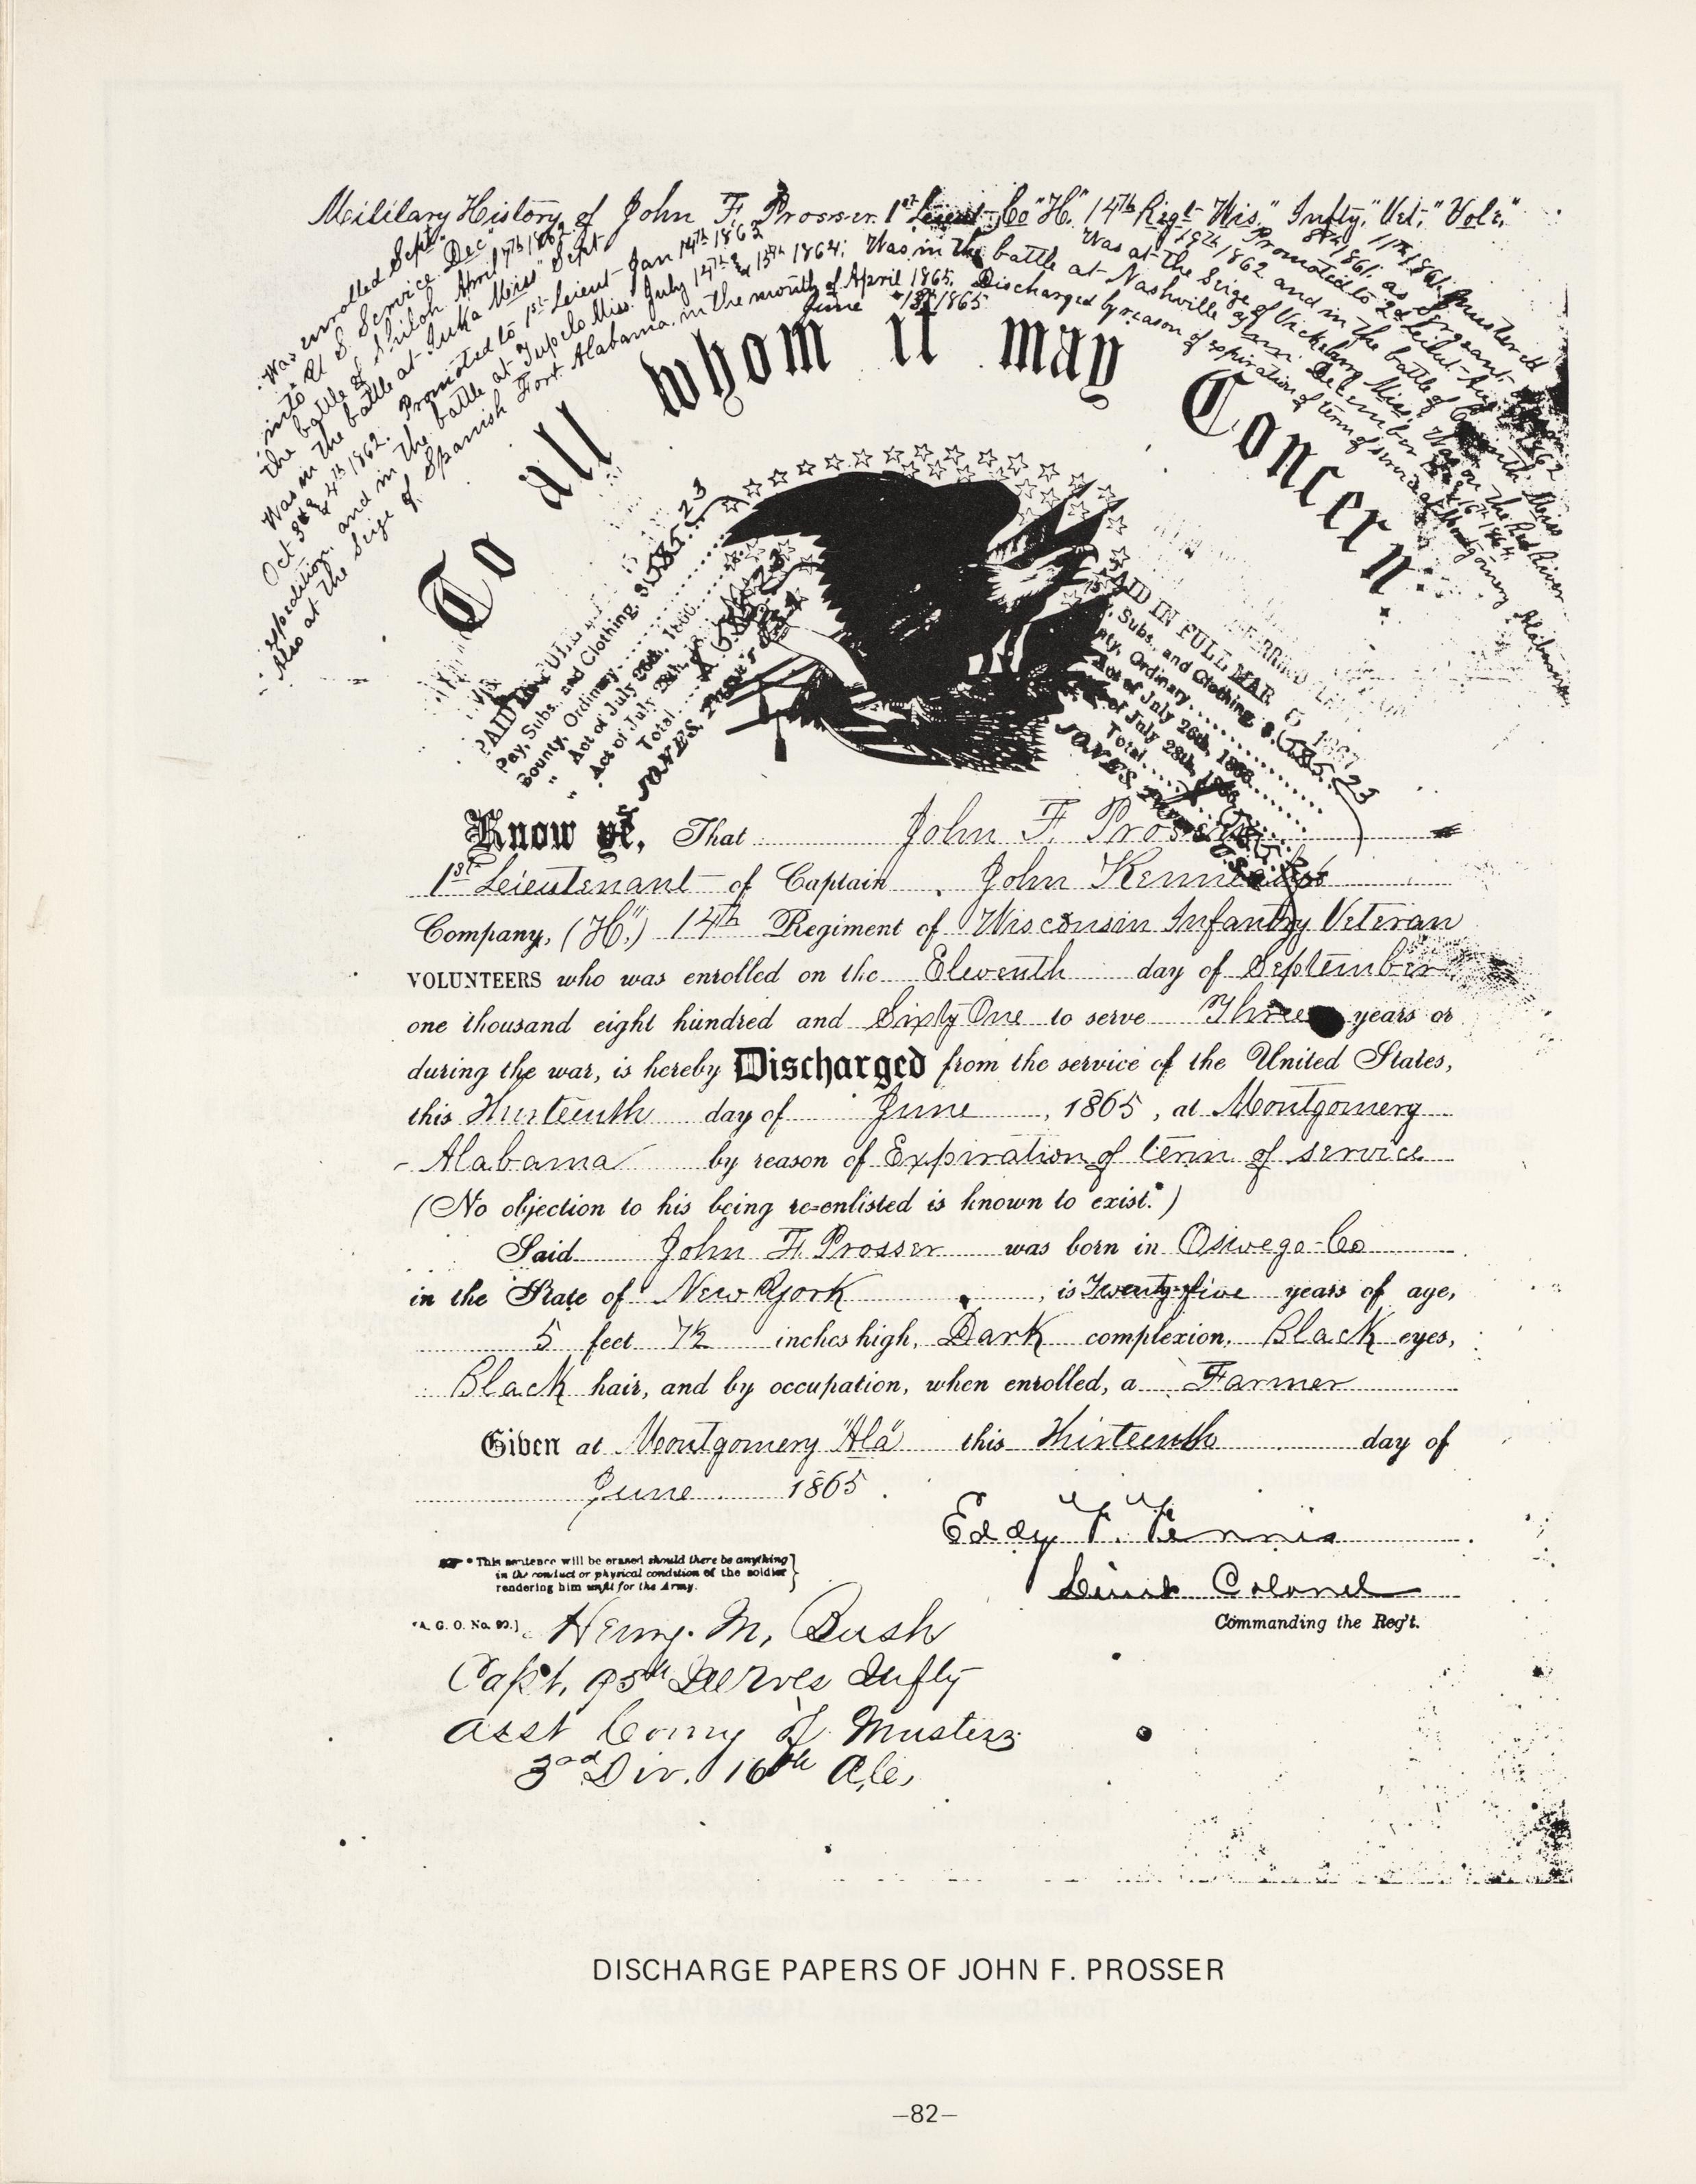 Military History of John F. Prosser 1st Lieut Co "H." 14th Regt Wis." Infty," Vet," Vols,"
Was enrolled Sept 11th 1861. Mustered
into U S Service Dec" 8th 1861. as Sergeant
the battle of Shiloh April 7th 1862. Promoted to 2d Leiut
Was in the battle at Iuka Miss" Sept 19th 1862 and in the battle of Corinth Miss
Oct 3d & 4th 1862. Promoted to 1st Leient Jan 14th 1863 Was at the Seige of Vicksburg Miss. Was on the Red River
expedition, and in the battle at Tupelo Miss. July 14th & 15th 1864; Was in the battle at Nashville
Also at the Seige of Spanish Fort Alabama, in the month of April 1865. Discharged by reason of expiration of term of service at Montgomery Alabama
June 13th 1865
To all whom it may Concern.
PAID IN FULL
Pay, Subs. and Clothing,
Bounty, Ordinary
" Act of July 28th, 1866
Act of July 28th,
Total
JONES,
PAID IN FULL MAR 6 1867
Subs. and Clothing, $ 685.23
Ordinary
Act of July 26th, 1866
of July 28th, 1866
Total
JONES
Know ye, That John F. Prosser
1st Leieutenant of Captain John Kennedy's
Company, (H.") 14th Regiment of Wisconsin Infantry Veteran
VOLUNTEERS who was enrolled on the Eleventh day of September
one thousand eight hundred and Sixty One to serve Three years or
during the war, is hereby Discharged from the service of the United States,
this Thirteenth day of June, 1865, at Montgomery
Alabama by reason of Expiration of term of service
(No objection to his being re-enlisted is known to exist.*)
Said John F. Prosser was born in Oswego Co
in the State of New York, is Twenty-five years of age,
5 feet 7½ inches high, Dark complexion, Black eyes,
Black hair, and by occupation, when enrolled, a Farmer
Given at Montgomery "Ala" this Thirteenth day of
June 1865.
Eddy F. Ferris
Leiut Colonel
Commanding the Reg't.
* This sentence will be erased should there be anything
in the conduct or physical condition of the soldier
rendering him unfit for the Army.
[A. G. O. No. 99.]
Henry M. Bush
Capt. 95th Infty
Asst Comy of Musters
3rd Div. 16th A.C.
DISCHARGE PAPERS OF JOHN F. PROSSER
–82–